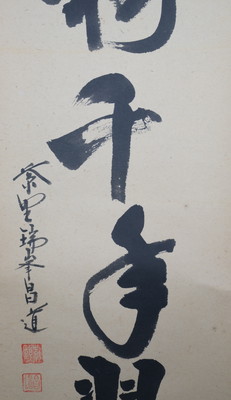 千年
紫野瑞峯昌道